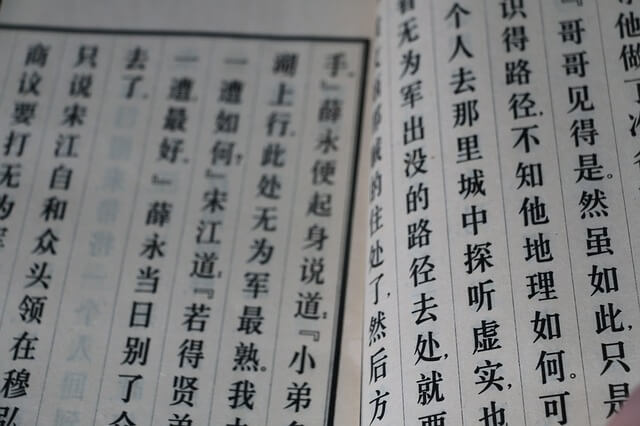 他做了
『哥哥见得是。然虽如此,只是
识得路径,不知他地理如何。可
个人去那里城中探听虚实,也
看无为军出没的路径去处,就要
贼的住处了,然后方
手。』薛永便起身说道:『小弟
湖上行。此处无为军最熟。我
一遭如何?』宋江道:『若得贤弟
一遭最好。』薛永当日别了
去了。
只说宋江自和众头领在穆弘
商议要打无为军